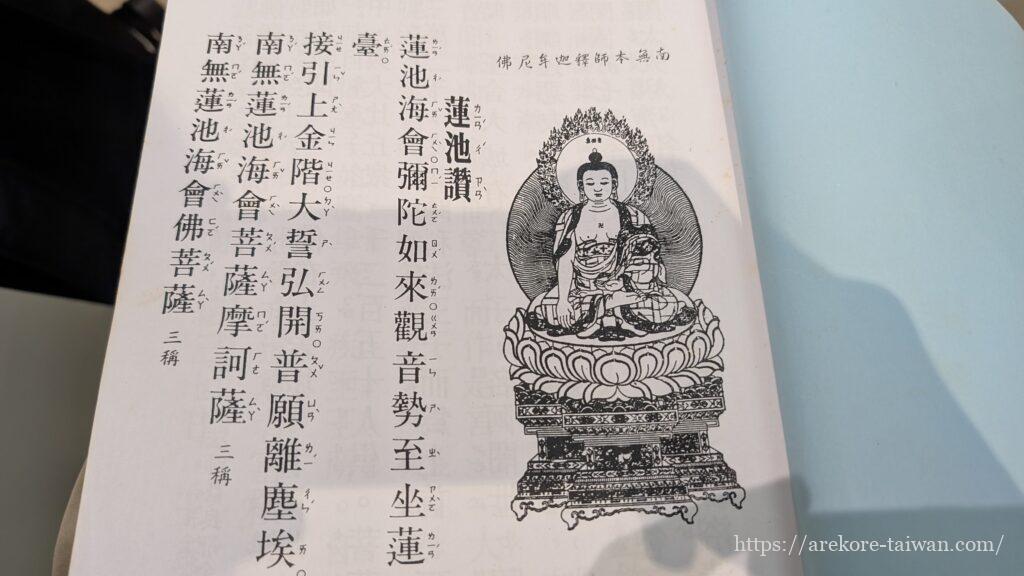 南無本師釋迦牟尼佛
蓮池讚
蓮池海會。彌陀如來。觀音勢至坐蓮
臺。
接引上金階。大誓弘開。普願離塵埃。
南無蓮池海會菩薩摩訶薩 三稱
南無蓮池海會佛菩薩 三稱
https://arekore-taiwan.com/